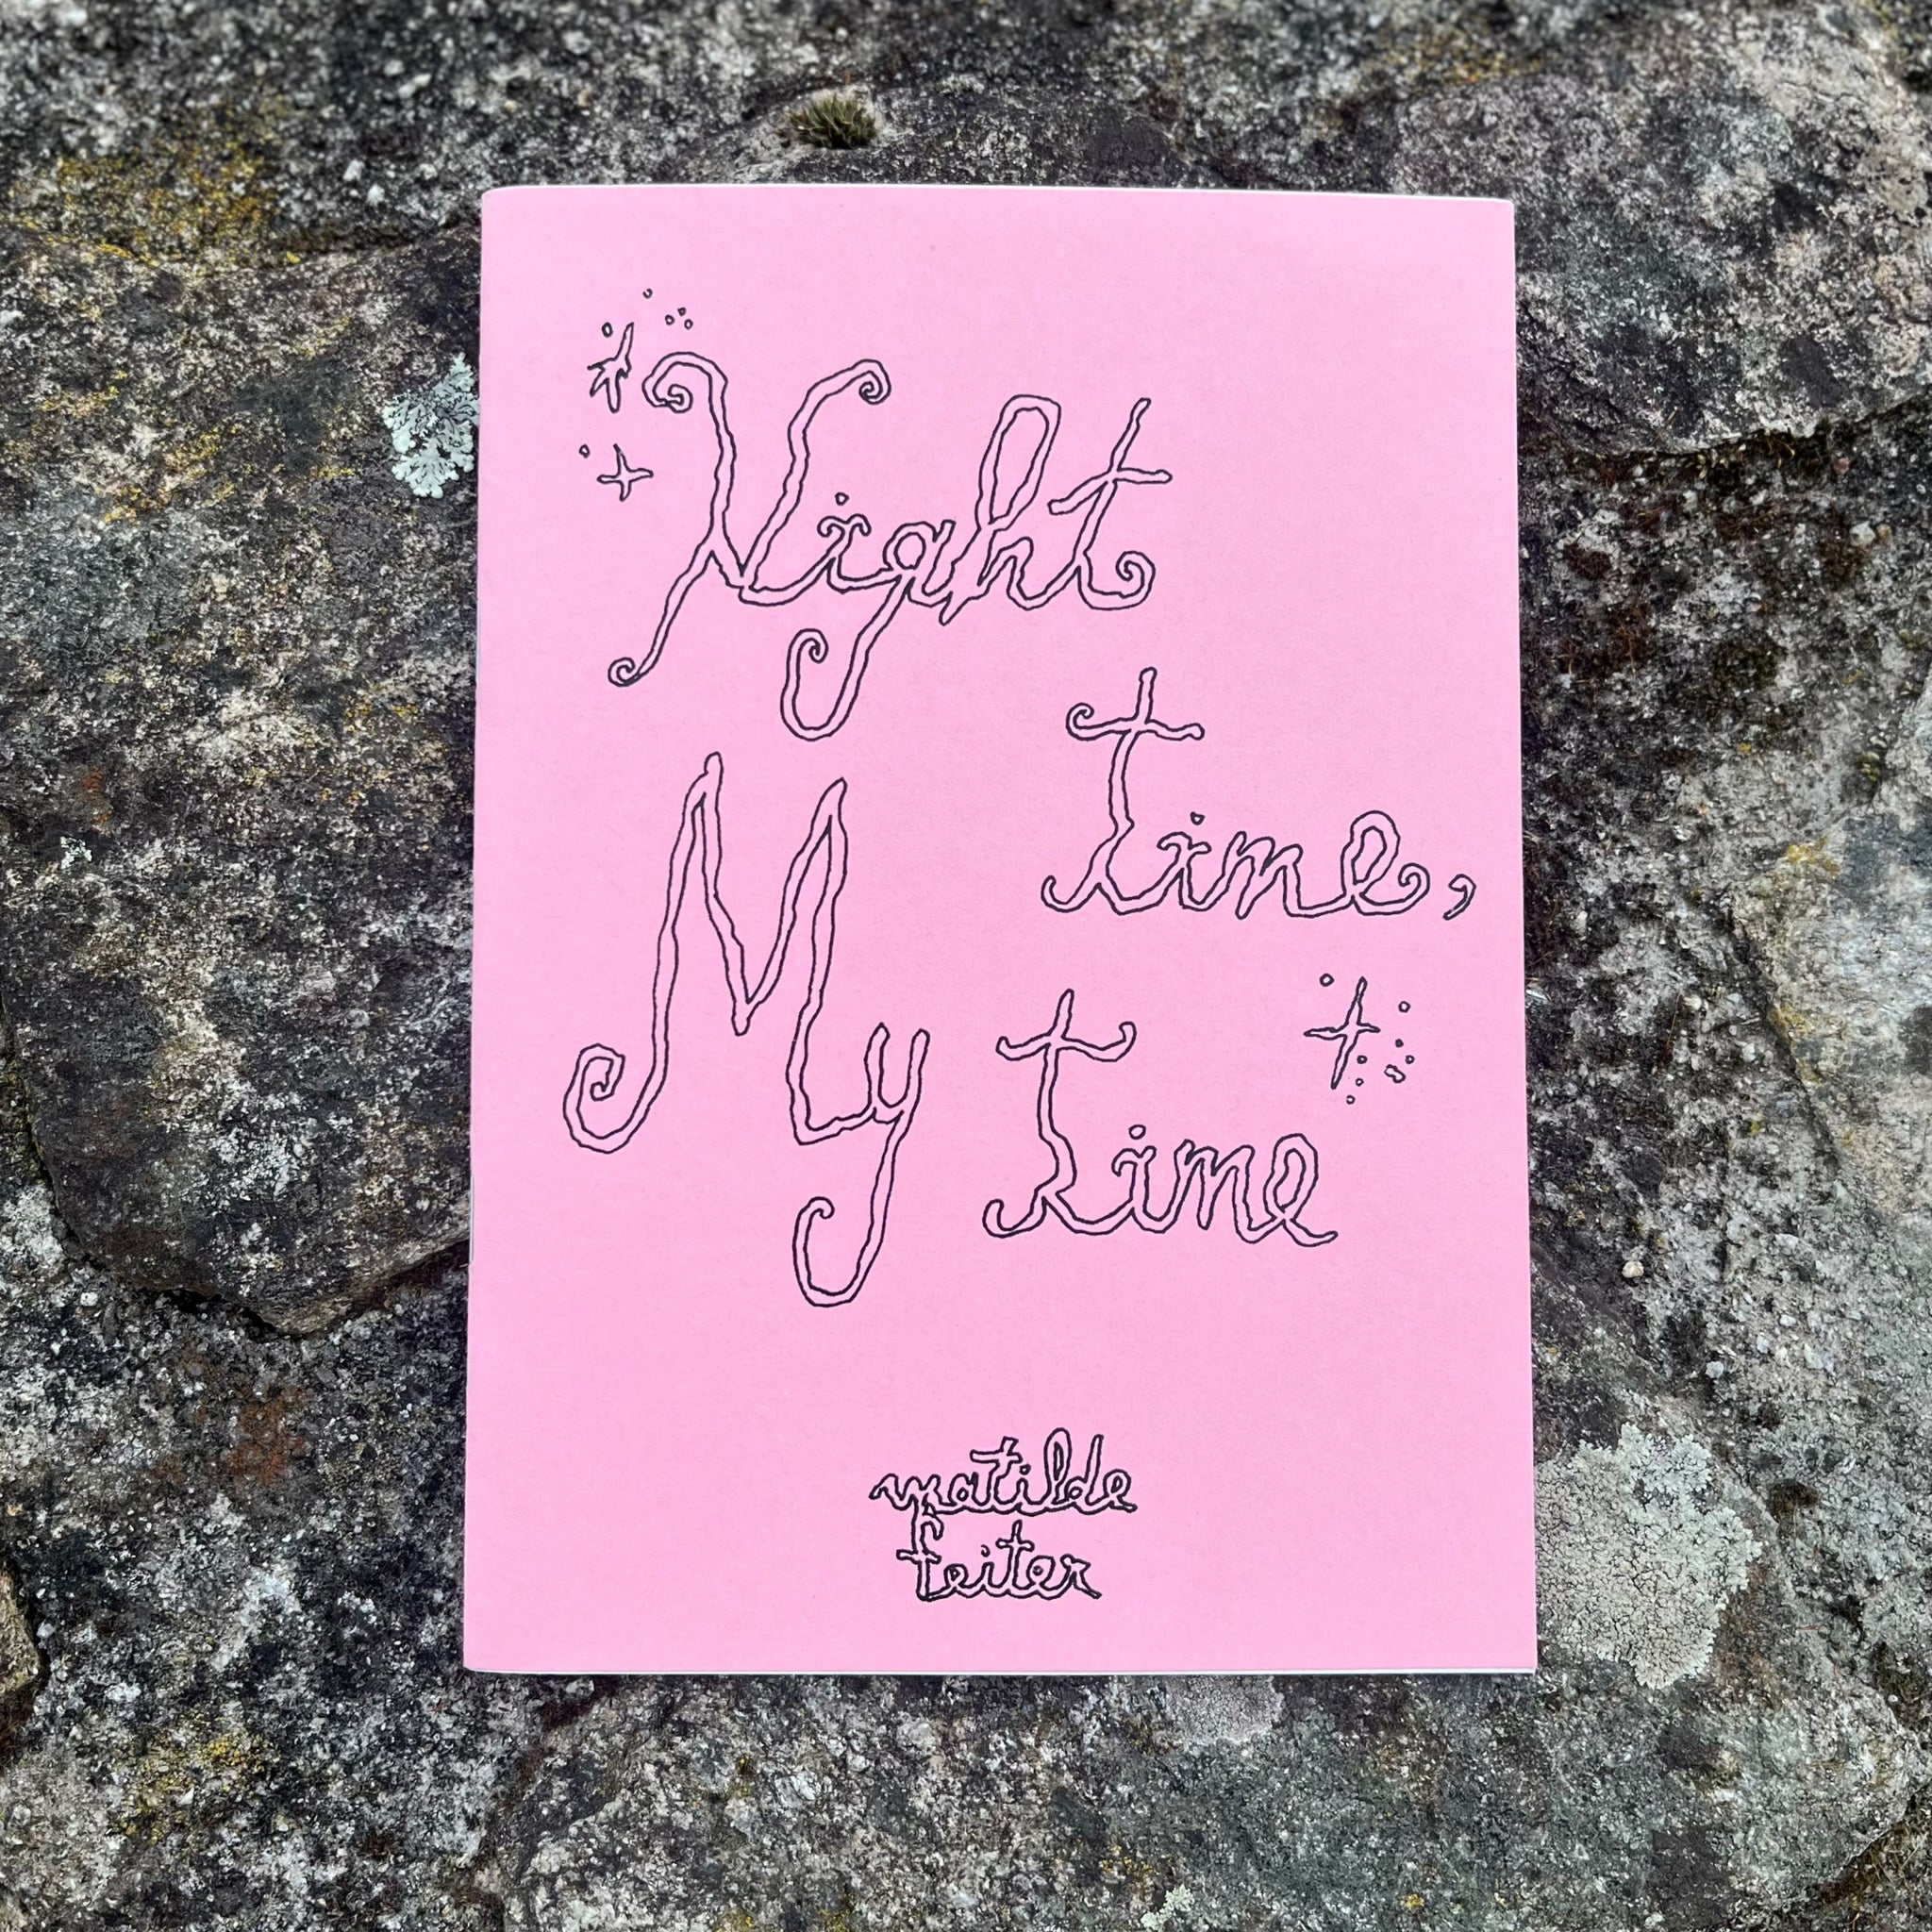 Night
time,
My time
matilde
feiter